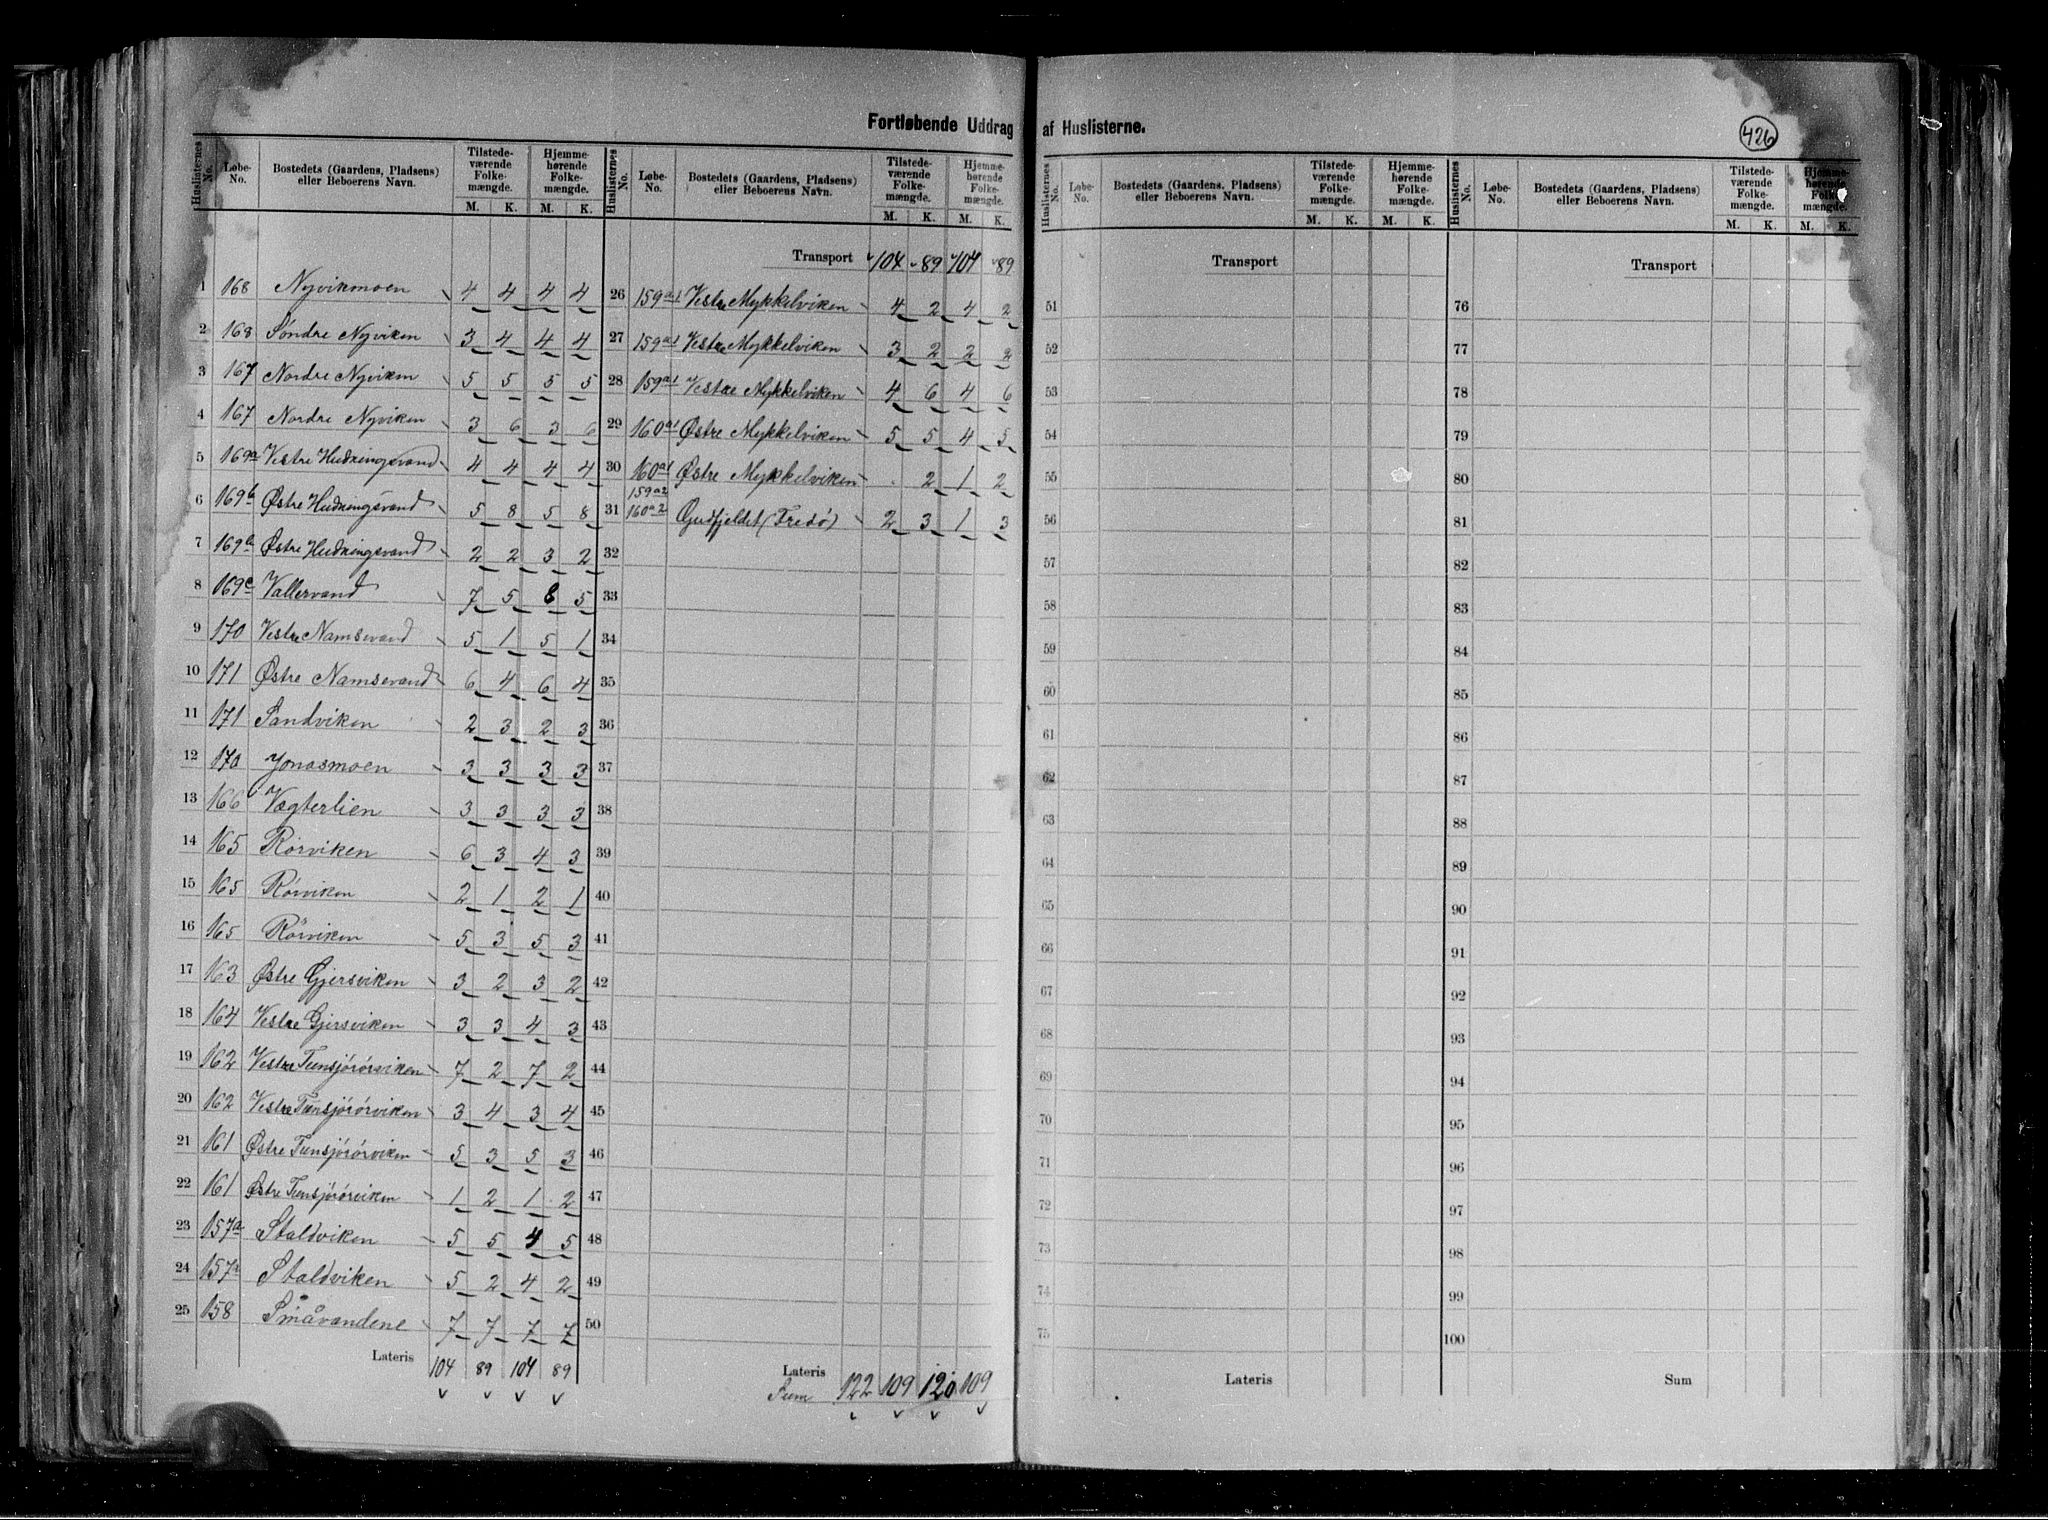 Fortløbende Uddrag af Huslisterne.
426
Huslisternes No. Løbe-No. Bostedets (Gaardens, Pladsens) eller Beboerens Navn. Tilstedeværende Folkemængde. M. K. Hjemmehørende Folkemængde. M. K.
1 168 Nyvikmoen 4 4 4 4
2 168 Søndre Nyviken 3 4 4 4
3 167 Nordre Nyviken 5 5 5 5
4 167 Nordre Nyviken 3 6 3 6
5 169a Vestre Hudningsvand 4 4 4 4
6 169b Østre Hudningsvand 5 8 5 8
7 169b Østre Hudningsvand 2 2 3 2
8 169c Vallervand 7 5 8 5
9 170 Vestre Namsevand 5 1 5 1
10 171 Østre Namsevand 6 4 6 4
11 171 Sandviken 2 3 2 3
12 170 Jonasmoen 3 3 3 3
13 166 Vægterlien 3 3 3 3
14 165 Rørviken 6 3 4 3
15 165 Rørviken 2 1 2 1
16 165 Rørviken 5 3 5 3
17 163 Østre Gjersviken 3 2 3 2
18 164 Vestre Gjersviken 3 3 4 3
19 162 Vestre Tunsjørørviken 7 2 7 2
20 162 Vestre Tunsjørørviken 3 4 3 4
21 161 Østre Tunsjørørviken 5 3 5 3
22 161 Østre Tunsjørørviken 1 2 1 2
23 157a Staldviken 5 5 4 5
24 157a Staldviken 5 2 4 2
25 158 Småvandene 7 7 7 7
Lateris 104 89 104 89
Huslisternes No. Løbe-No. Bostedets (Gaardens, Pladsens) eller Beboerens Navn. Tilstedeværende Folkemængde. M. K. Hjemmehørende Folkemængde. M. K.
Transport 104 89 104 89
26 159a1 Vestre Mykkelviken 4 2 4 2
27 159a1 Vestre Mykkelviken 3 2 2 2
28 159a1 Vestre Mykkelviken 4 6 4 6
29 160a1 Østre Mykkelviken 5 5 4 5
30 160a1 Østre Mykkelviken . 2 1 2
159a2
31 160a2 Gudfjeldet (Fredø) 2 3 1 3
32
33
34
35
36
37
38
39
40
41
42
43
44
45
46
47
48
49
50
Lateris
Sum 122 109 120 109
Huslisternes No. Løbe-No. Bostedets (Gaardens, Pladsens) eller Beboerens Navn. Tilstedeværende Folkemængde. M. K. Hjemmehørende Folkemængde. M. K.
Transport
51
52
53
54
55
56
57
58
59
60
61
62
63
64
65
66
67
68
69
70
71
72
73
74
75
Lateris
Huslisternes No. Løbe-No. Bostedets (Gaardens, Pladsens) eller Beboerens Navn. Tilstedeværende Folkemængde. M. K. Hjemmehørende Folkemængde. M. K.
Transport
76
77
78
79
80
81
82
83
84
85
86
87
88
89
90
91
92
93
94
95
96
97
98
99
100
Sum